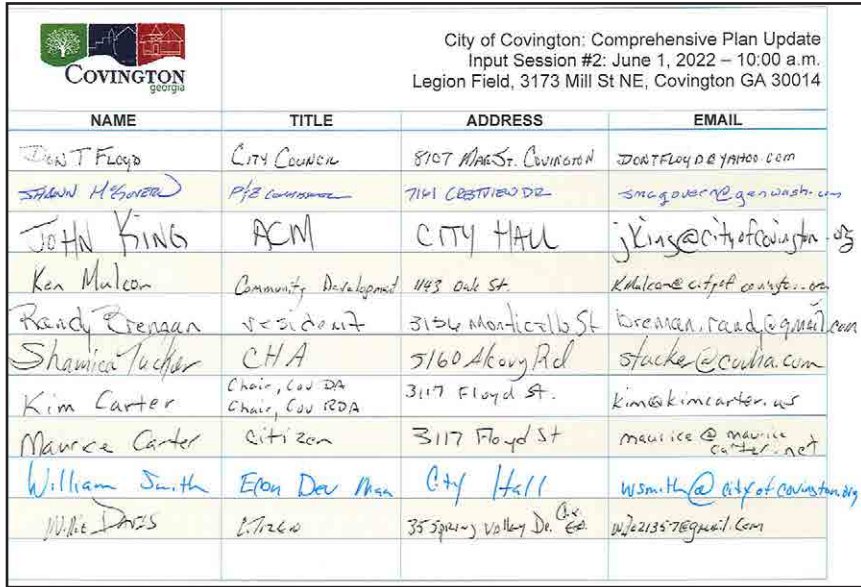 COVINGTON
georgia
City of Covington: Comprehensive Plan Update
Input Session #2: June 1, 2022 – 10:00 a.m.
Legion Field, 3173 Mill St NE, Covington GA 30014
NAME TITLE ADDRESS EMAIL
DON T FLOYD CITY COUNCIL ST. COVINGTON DONTFLOYD@YAHOO.COM
SHAWN P/Z 7141 CRESTVIEW DR
JOHN KING ACM CITY HALL jking@cityofcovington.org
Ken Malcom Community Development 1143 Oak St.
Randy Brennan resident 3156 Monticello St brennan.randy@gmail.com
Shamica Tucker CHA 5160 Alcovy Rd stucker@covha.com
Kim Carter Chair, Cov DA 3117 Floyd St. kim@kimcarter.us
Chair, Cov RDA
Maurice Carter citizen 3117 Floyd St maurice@maurice
carter.net
William Smith Econ Dev Man City Hall wsmith@cityofcovington.org
Willie DAVIS Citizen 35 Spring Valley Dr.